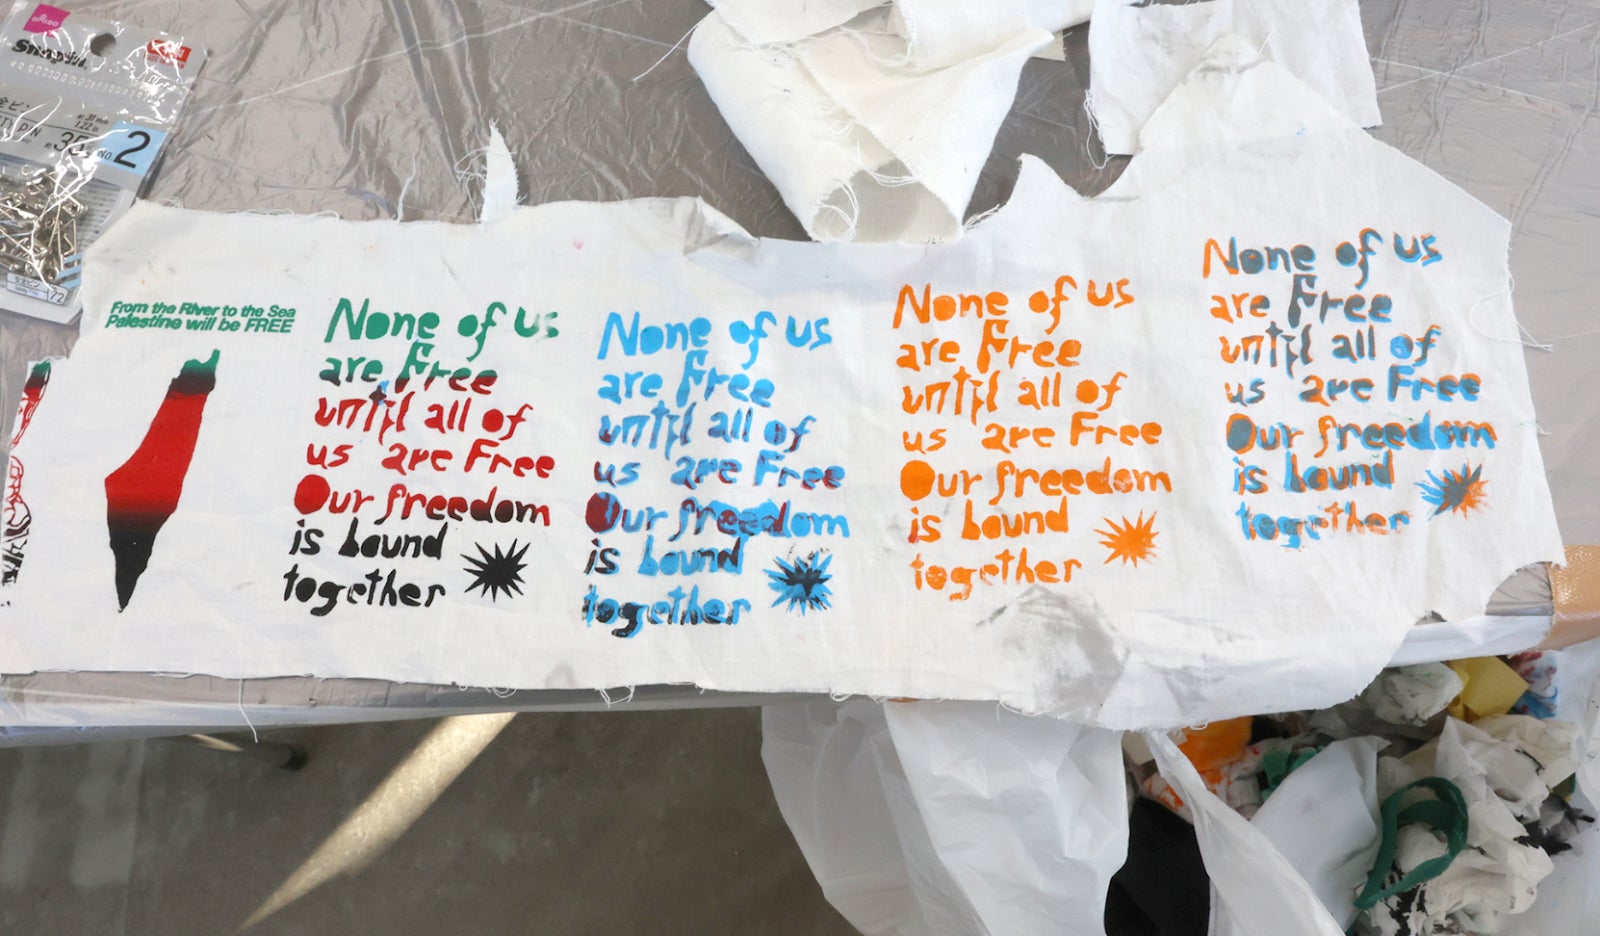 DAISO
安全ピン
SAFETY PIN
約31mm
1.22in
約35pcs No. 2
72
From the River to the Sea
Palestine will be FREE
None of us
are Free
until all of
us are Free
Our freedom
is bound
together
None of us
are Free
until all of
us are Free
Our freedom
is bound
together
None of us
are Free
until all of
us are Free
Our freedom
is bound
together
None of us
are Free
until all of
us are Free
Our freedom
is bound
together